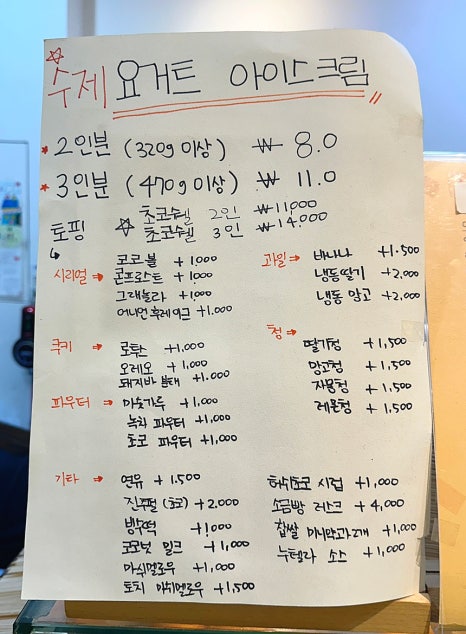 ☆수제 요거트 아이스크림
★2인분 (320g 이상) ₩ 8.0
★3인분 (470g 이상) ₩ 11.0
토핑 ☆ 초코쉘 2인 ₩11,000
초코쉘 3인 ₩14,000
시리얼 → 코코볼 +1,000
콘프로스트 +1,000
그래놀라 +1,000
어니언 후레이크 +1,000
과일 → 바나나 +1,500
냉동딸기 +2,000
냉동 망고 +2,000
쿠키 → 로투스 +1,000
오레오 +1,000
돼지바 분태 +1,000
청 →
딸기청 +1,500
망고청 +1,500
자몽청 +1,500
레몬청 +1,500
파우더 → 미숫가루 +1,000
녹차 파우더 +1,000
초코 파우더 +1,000
기타 → 연유 +1,500
진주펄 (초코) +2,000
빙수떡 +1,000
코코넛 밀크 +1,000
마쉬멜로우 +1,000
토치 마쉬멜로우 +1,500
허쉬초코 시럽 +1,000
소금빵 러스크 +4,000
찹쌀 미니약과2개 +1,000
누텔라 소스 +1,000